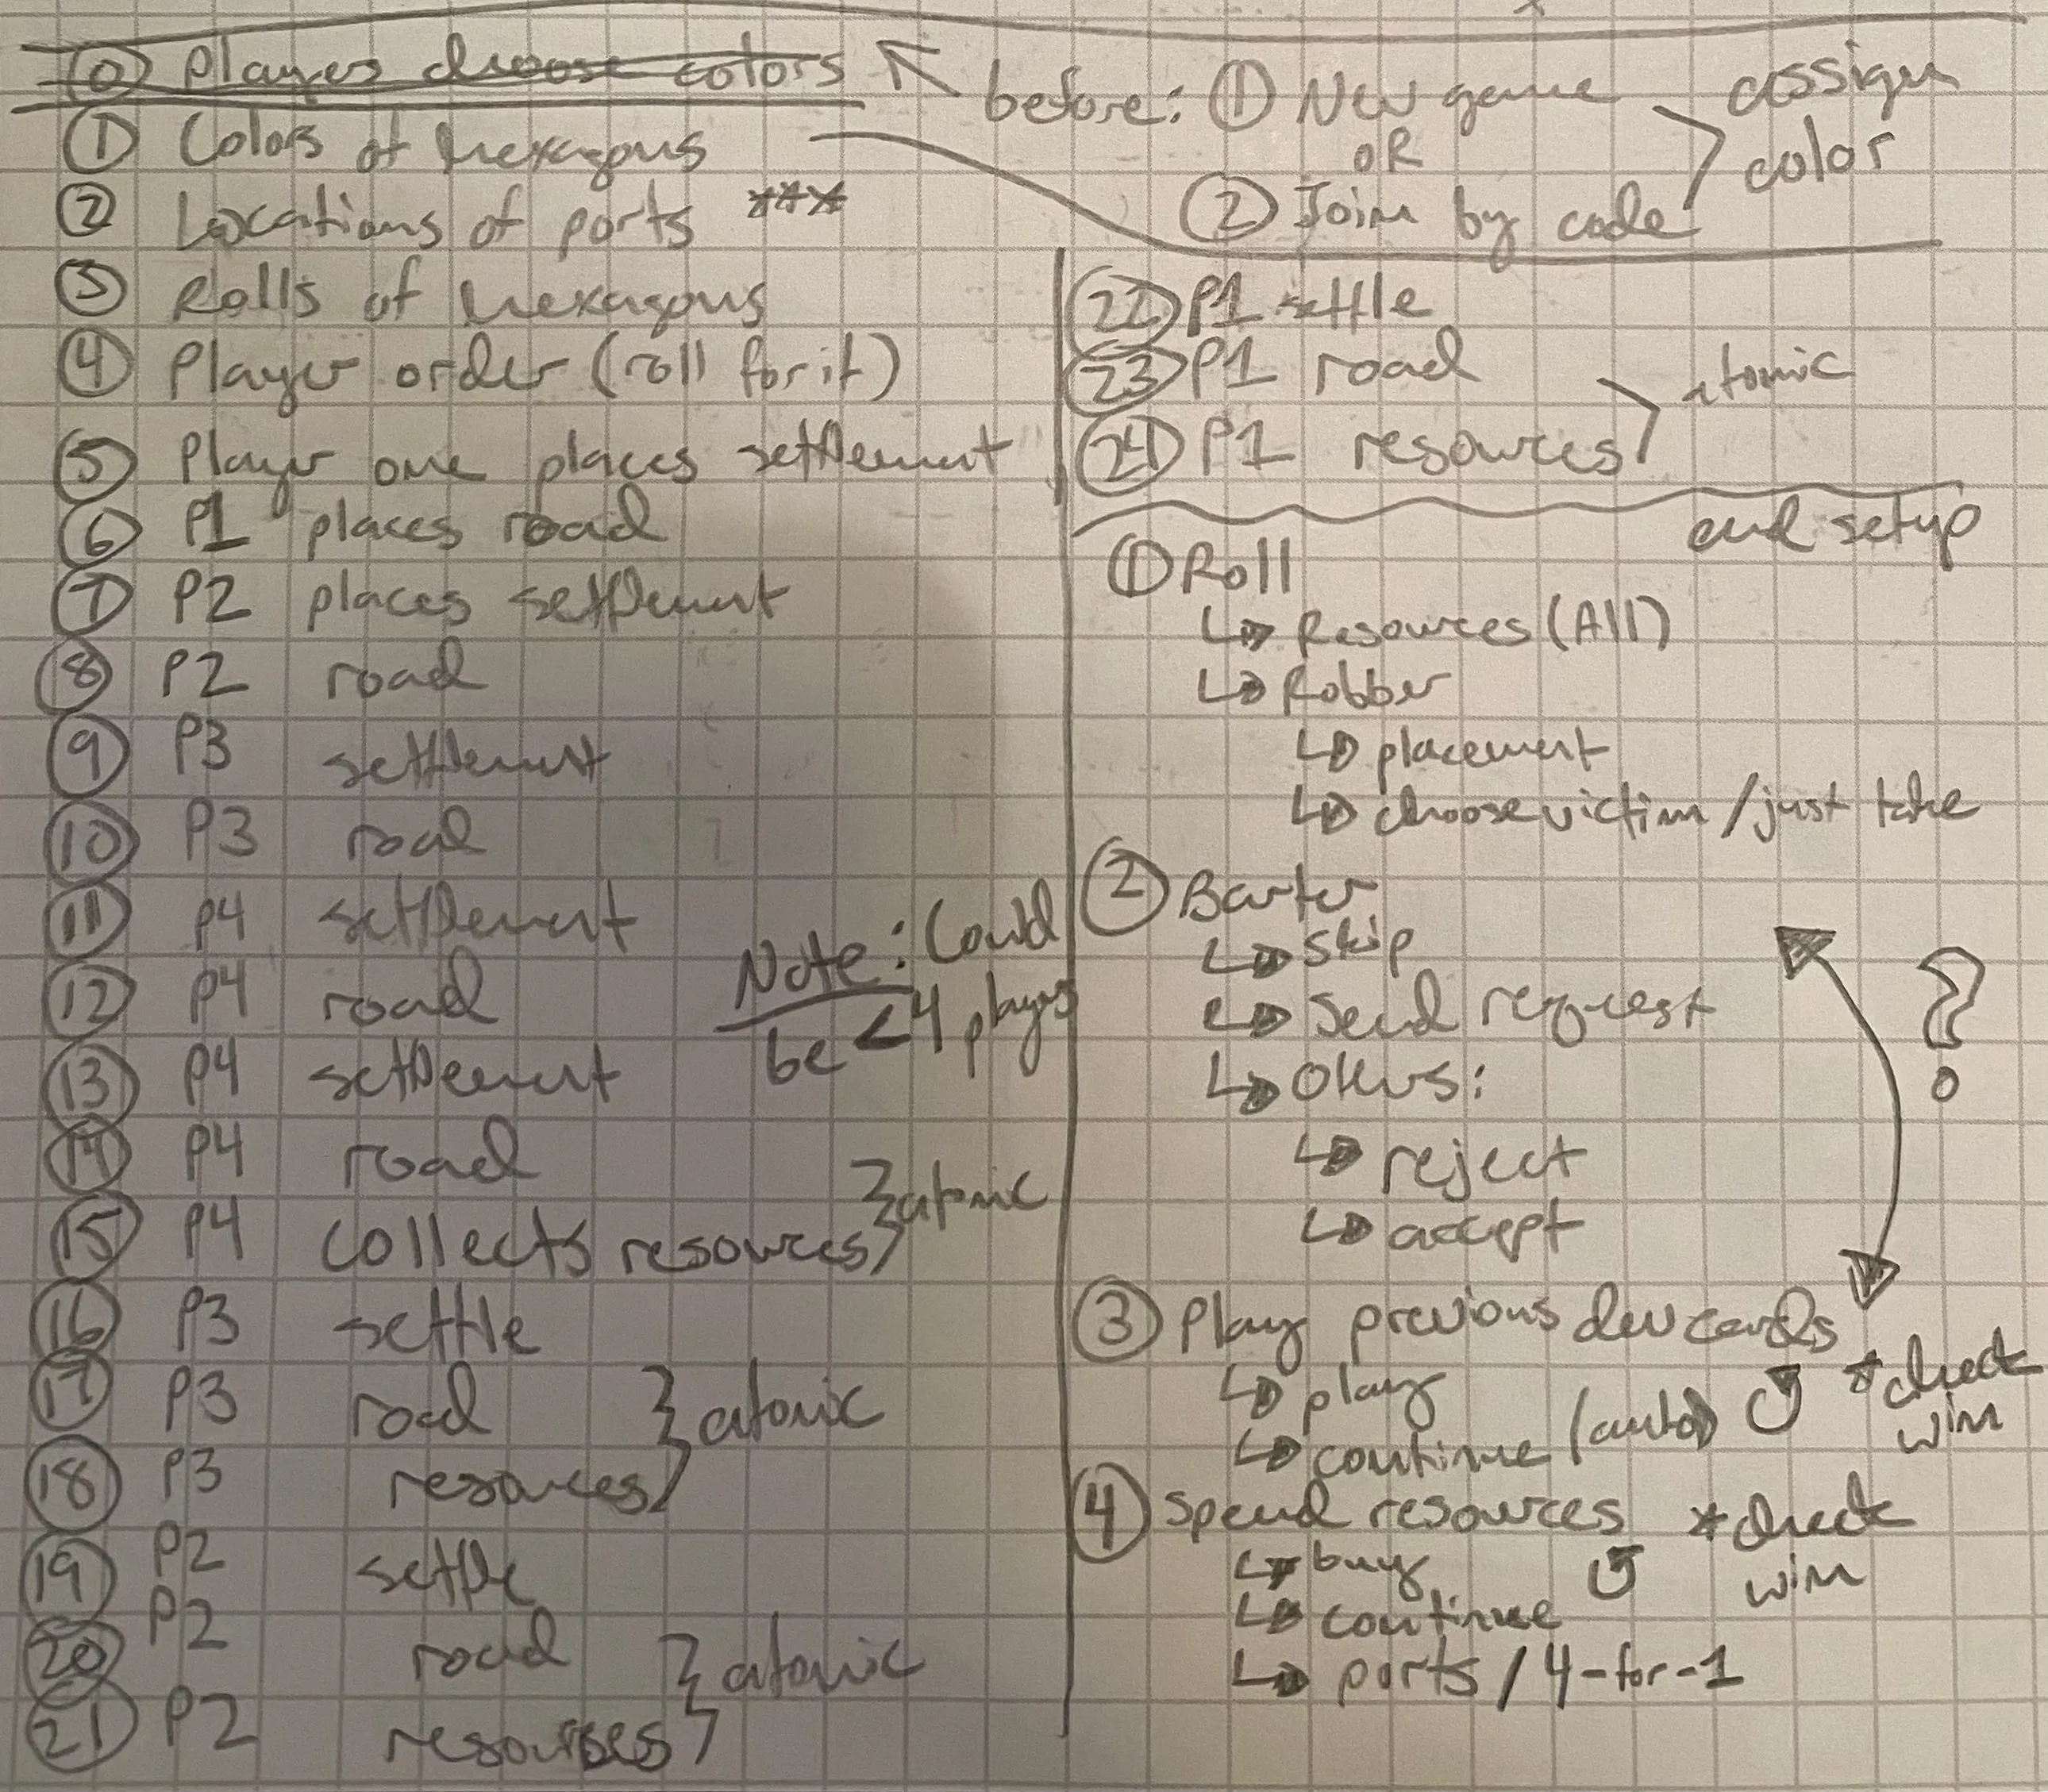 ⓪ Players choose colors
① Colors of hexagons
② Locations of ports ***
③ Rolls of hexagons
④ Player order (roll for it)
⑤ Player one places settlement
⑥ P1 places road
⑦ P2 places settlement
⑧ P2 road
⑨ P3 settlement
⑩ P3 road
⑪ P4 settlement
⑫ P4 road
⑬ P4 settlement
⑭ P4 road
⑮ P4 collects resources } atomic
Note: Could
be <4 players
⑯ P3 settle
⑰ P3 road
⑱ P3 resources } atomic
⑲ P2 settle
⑳ P2 road
㉑ P2 resources } atomic
before: ① New game
OR
② Join by code
assign
color
㉒ P1 settle
㉓ P1 road
㉔ P1 resources
atomic
end setup
① Roll
↳ Resources (All)
↳ Robber
↳ placement
↳ choose victim / just take
② Barter
↳ skip
↳ send request
↳ Others:
↳ reject
↳ accept
?
③ Play previous dev cards
↳ play
↳ continue (auto) ↺ *check
win
④ spend resources *check
win
↳ buy ↺
↳ continue
↳ ports / 4-for-1